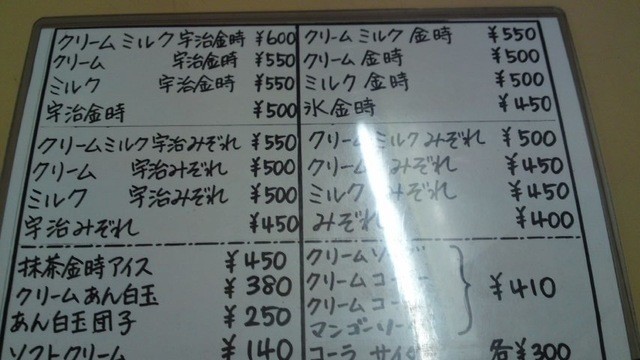 クリームミルク宇治金時 ¥600
クリーム 宇治金時 ¥550
ミルク 宇治金時 ¥550
宇治金時 ¥500
クリームミルク宇治みぞれ ¥550
クリーム 宇治みぞれ ¥500
ミルク 宇治みぞれ ¥500
宇治みぞれ ¥450
抹茶金時アイス ¥450
クリームあん白玉 ¥380
あん白玉団子 ¥250
ソフトクリーム ¥140
クリームミルク金時 ¥550
クリーム金時 ¥500
ミルク金時 ¥500
氷金時 ¥450
クリームミルクみぞれ ¥500
クリームみぞれ ¥450
ミルクみぞれ ¥450
みぞれ ¥400
クリーム
クリーム
クリーム
マンゴー
¥410
コーラ サイダー 各¥300